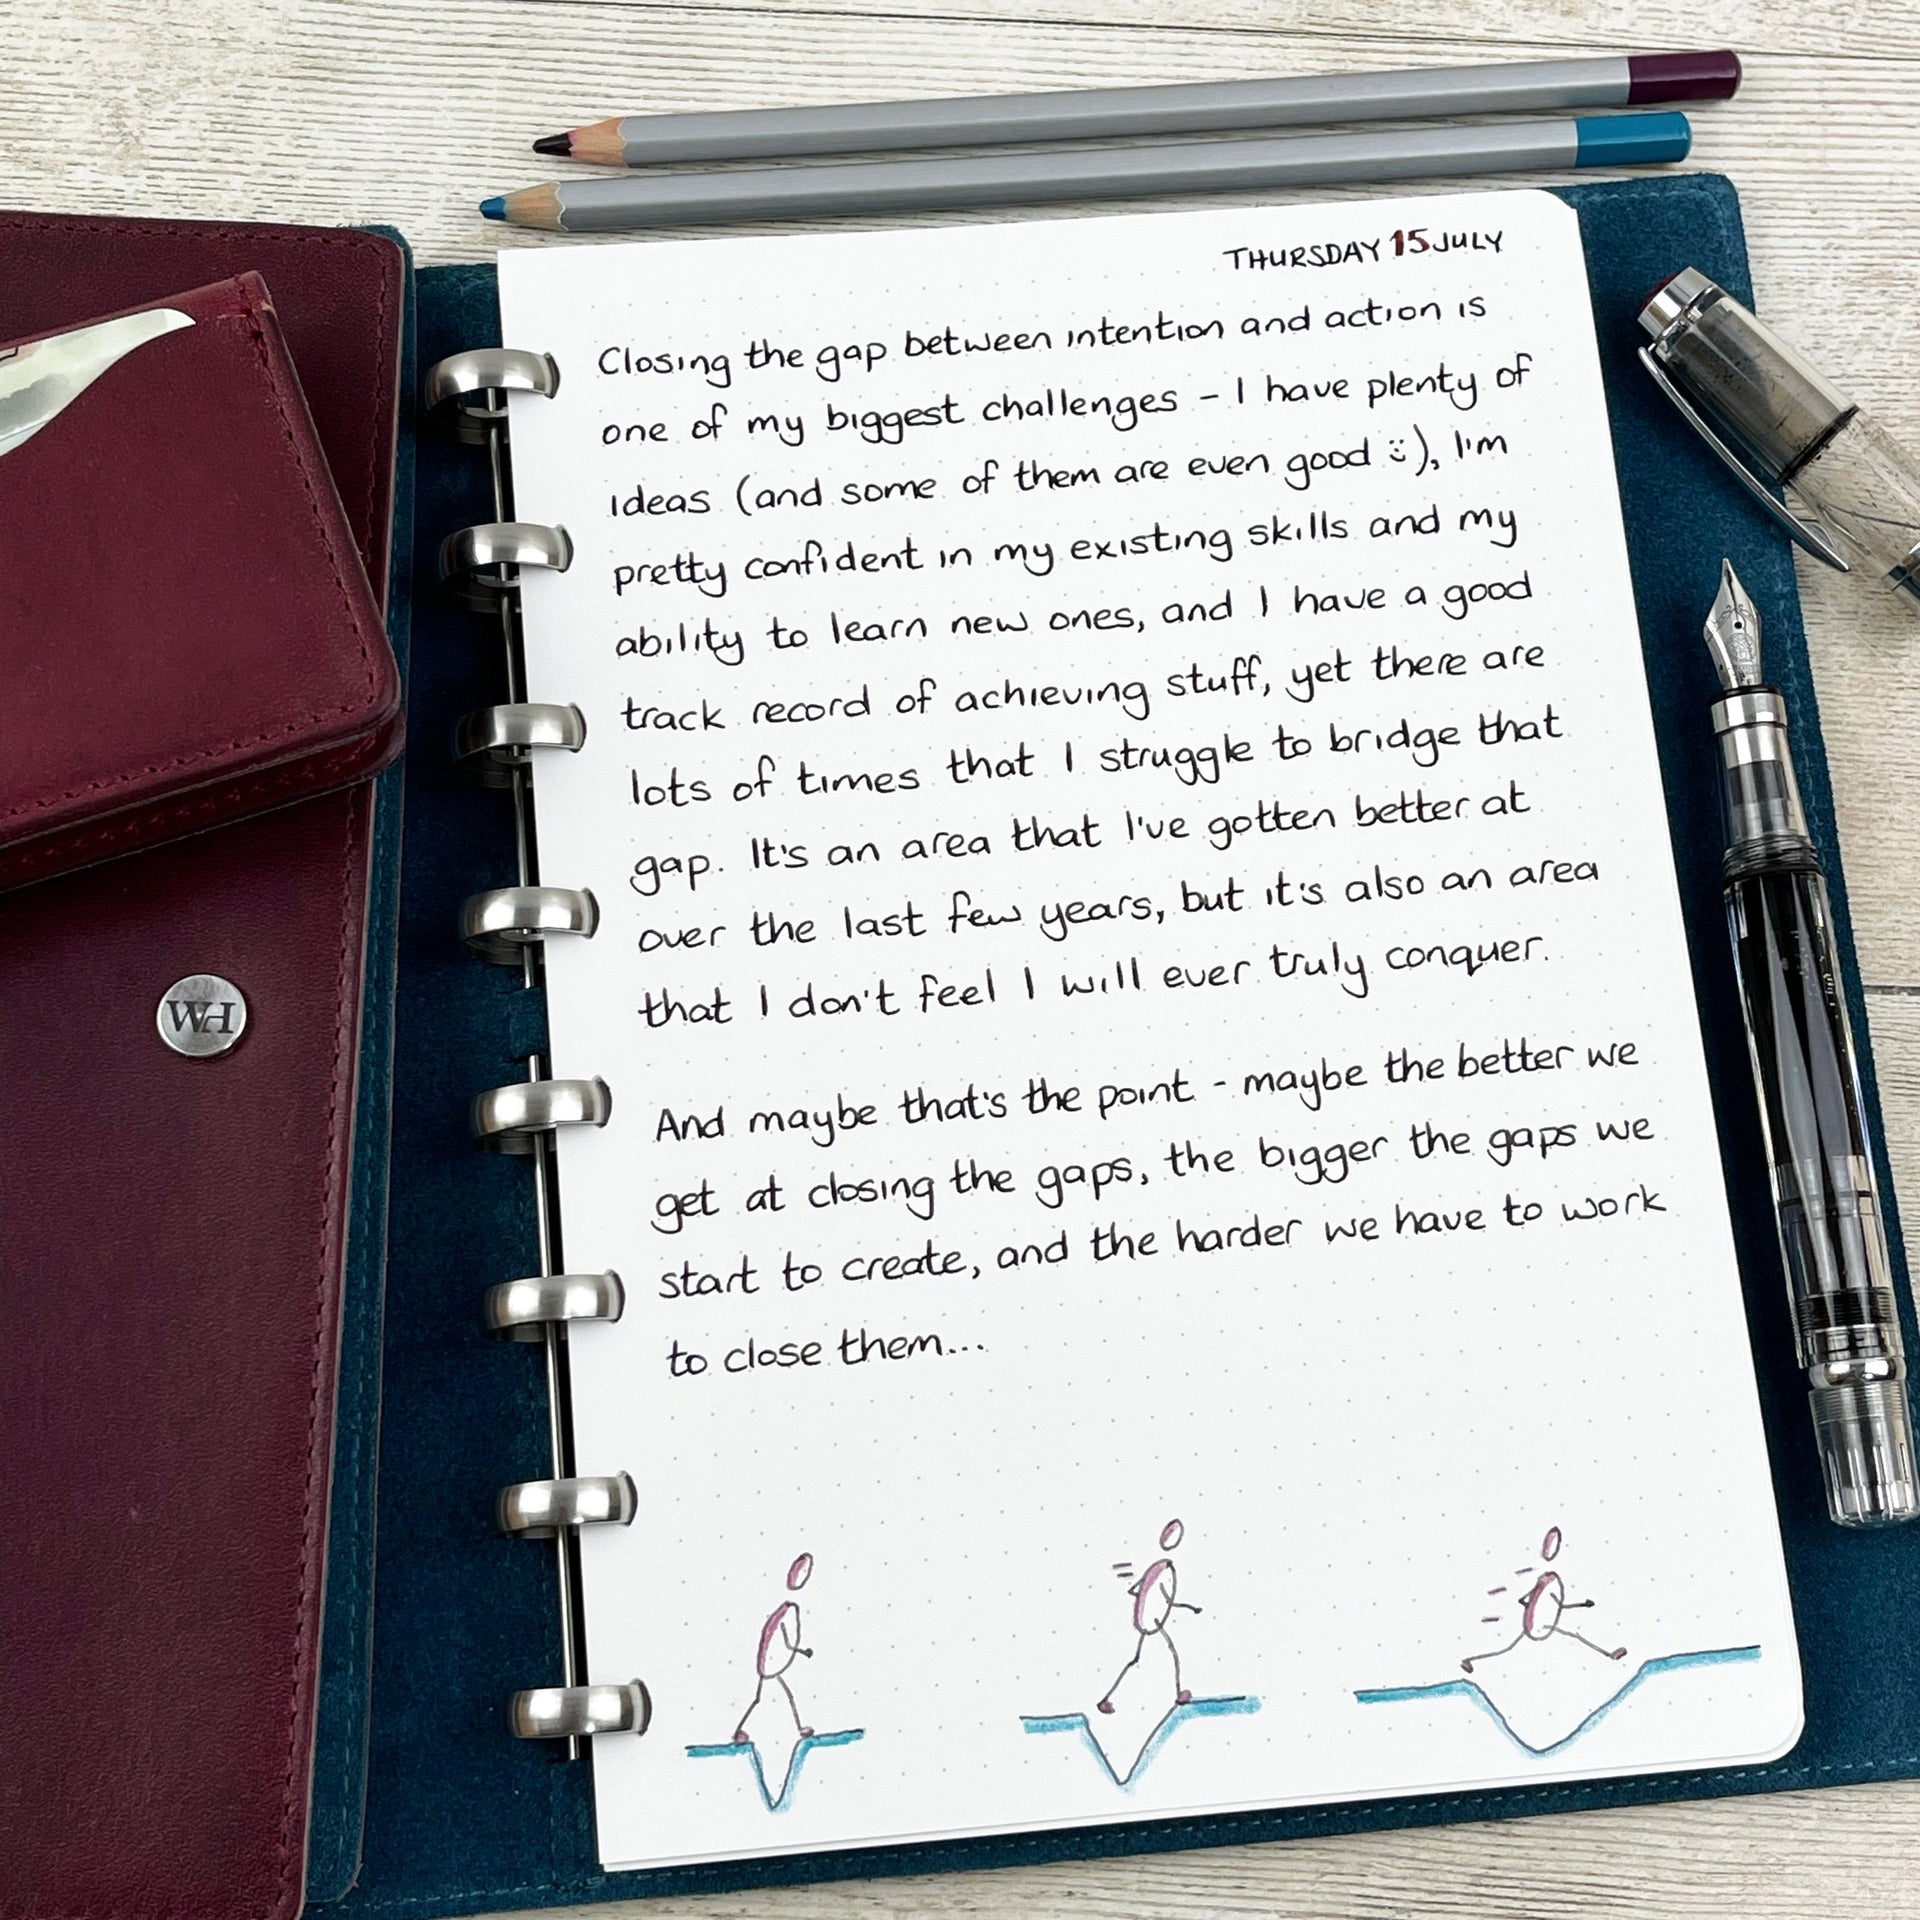 THURSDAY 15 JULY
Closing the gap between intention and action is
one of my biggest challenges - I have plenty of
ideas (and some of them are even good :)), I'm
pretty confident in my existing skills and my
ability to learn new ones, and I have a good
track record of achieving stuff, yet there are
lots of times that I struggle to bridge that
gap. It's an area that I've gotten better at
over the last few years, but it's also an area
that I don't feel I will ever truly conquer.
And maybe that's the point - maybe the better we
get at closing the gaps, the bigger the gaps we
start to create, and the harder we have to work
to close them...
WH